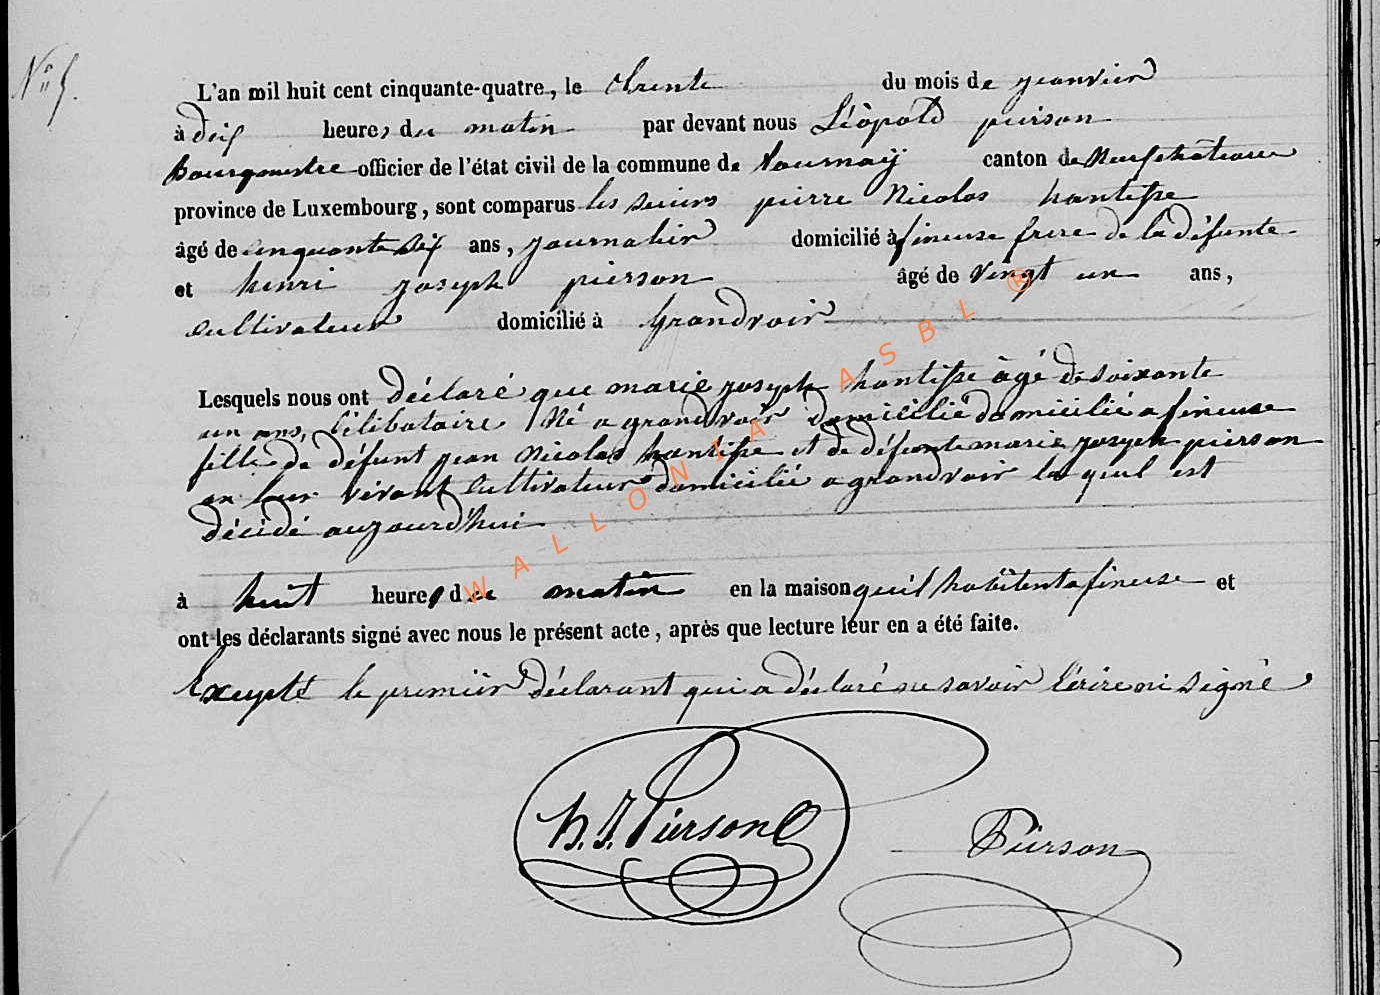 N° 5.
L'an mil huit cent cinquante-quatre, le trente du mois de janvier
à dix heures du matin par devant nous Léopold pierson
Bourgmestre officier de l'état civil de la commune de tournaÿ canton de Neufchâteau
province de Luxembourg, sont comparus les sieurs pierre Nicolas hantisse
âgé de cinquante six ans, journalier domicilié à fineuse frere de la défunte
et henri joseph pierson âgé de vingt un ans,
cultivateur domicilié à grandvoir
Lesquels nous ont déclaré que marie joseph hantisse âgé de soixante
un ans, Célibataire Né a grandvoir domicilié domicilié a fineuse
fille de défunt jean Nicolas hantisse et de défunte marie joseph pierson
en leur vivant Cultivateur domicilié a grandvoir la quel est
décédé aujourd'hui
à huit heures du matin en la maison qu'il habitent a fineuse et
ont les déclarants signé avec nous le présent acte, après que lecture leur en a été faite.
Excepté le premier déclarant qui a déclaré ne savoir l'érire ni signé
h. J. Pierson
Pierson
WALLONIA ASBL ®